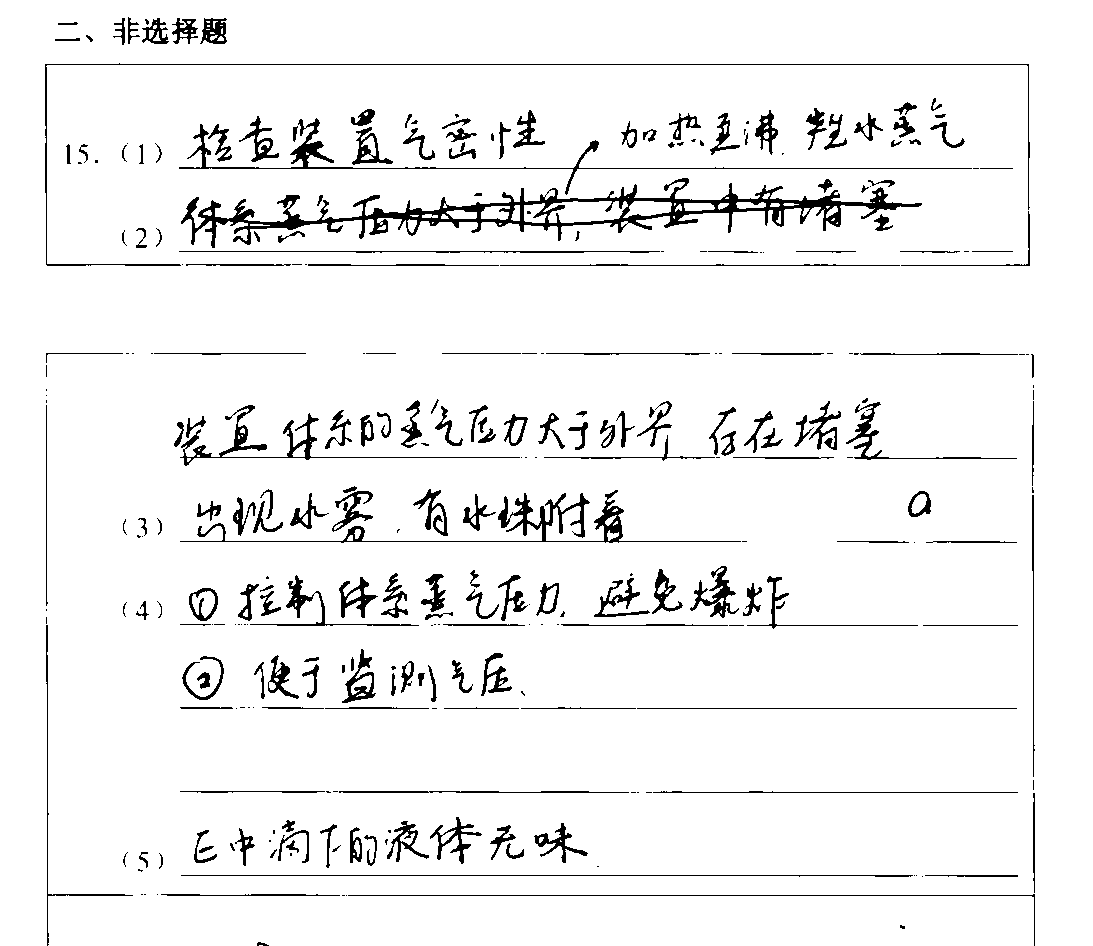 二、非选择题
15.（1）检查装置气密性 加热至沸 产生水蒸气
（2）体系蒸气压力大于外界，装置中有堵塞
装置体系的蒸气压力大于外界 存在堵塞
（3）出现水雾、有水珠附着 a
（4）① 控制体系蒸气压力，避免爆炸
② 便于监测气压、
（5）E中滴下的液体无味